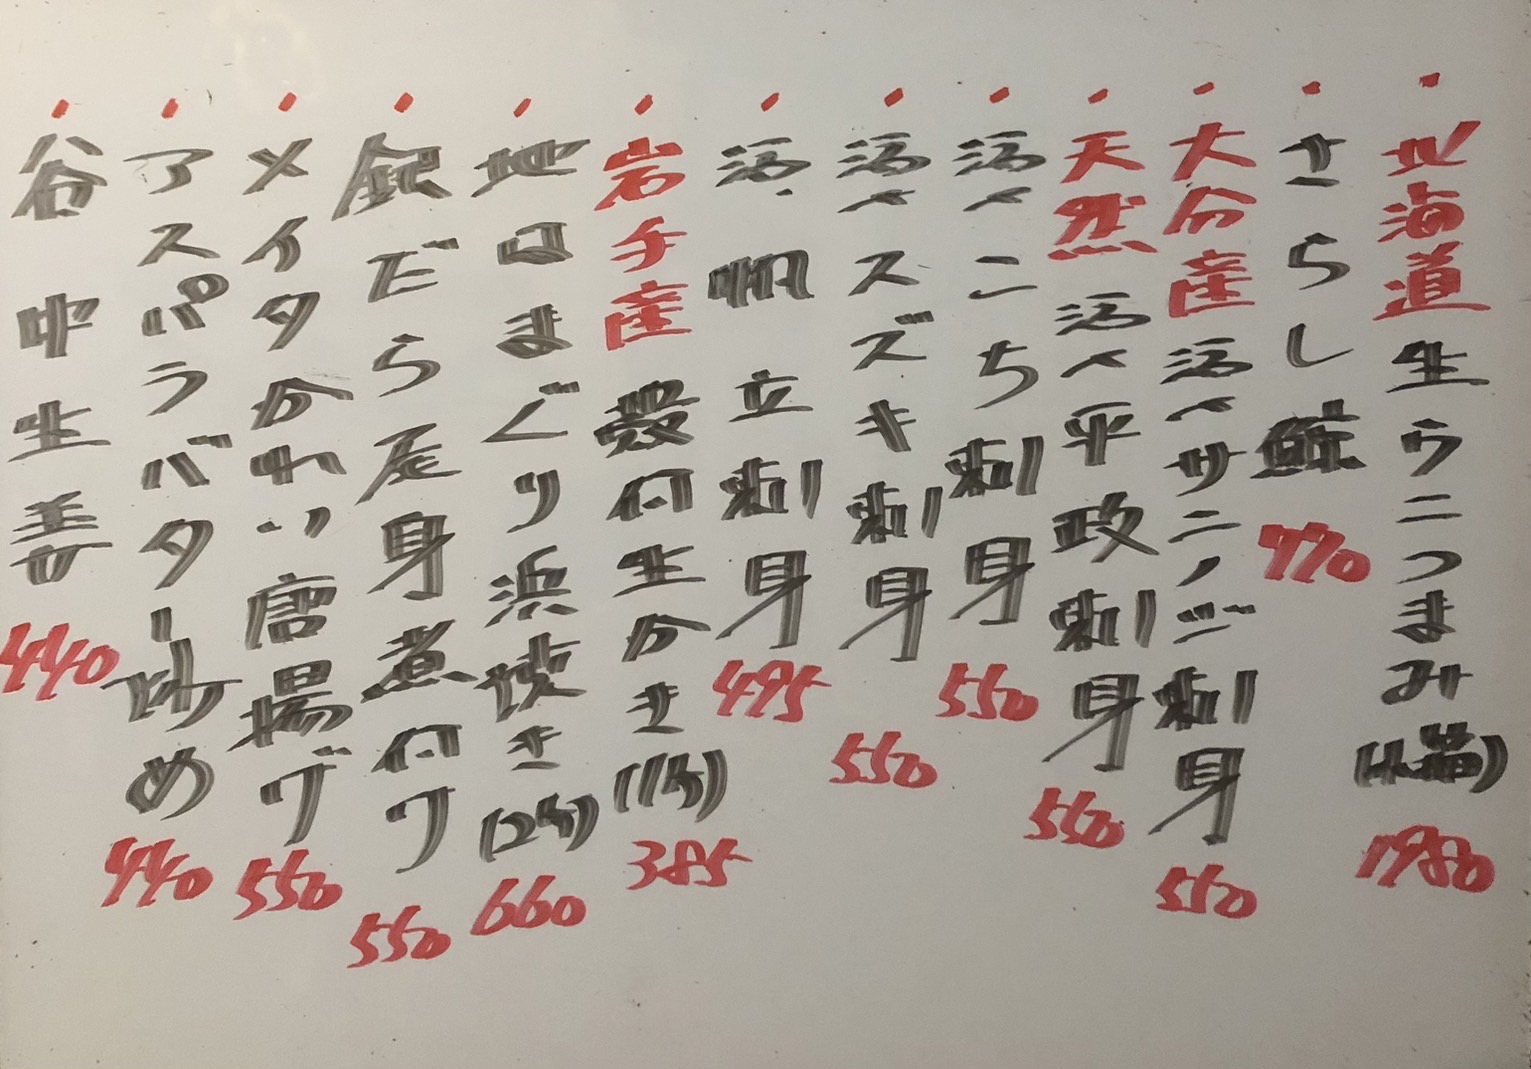 北海道生ウニつまみ(小箱)1980
さらし鯨770
大分産活〆サンノジ刺身550
天然活〆平政刺身550
活〆こち刺身550
活〆スズキ刺身550
活・帆立刺身495
岩手産殻付生かき(1ケ)385
地はまぐり浜焼き(2ケ)660
銀だら尾身煮付ケ550
メイタかれい唐揚ゲ550
アスパラバター炒め440
谷中生姜440